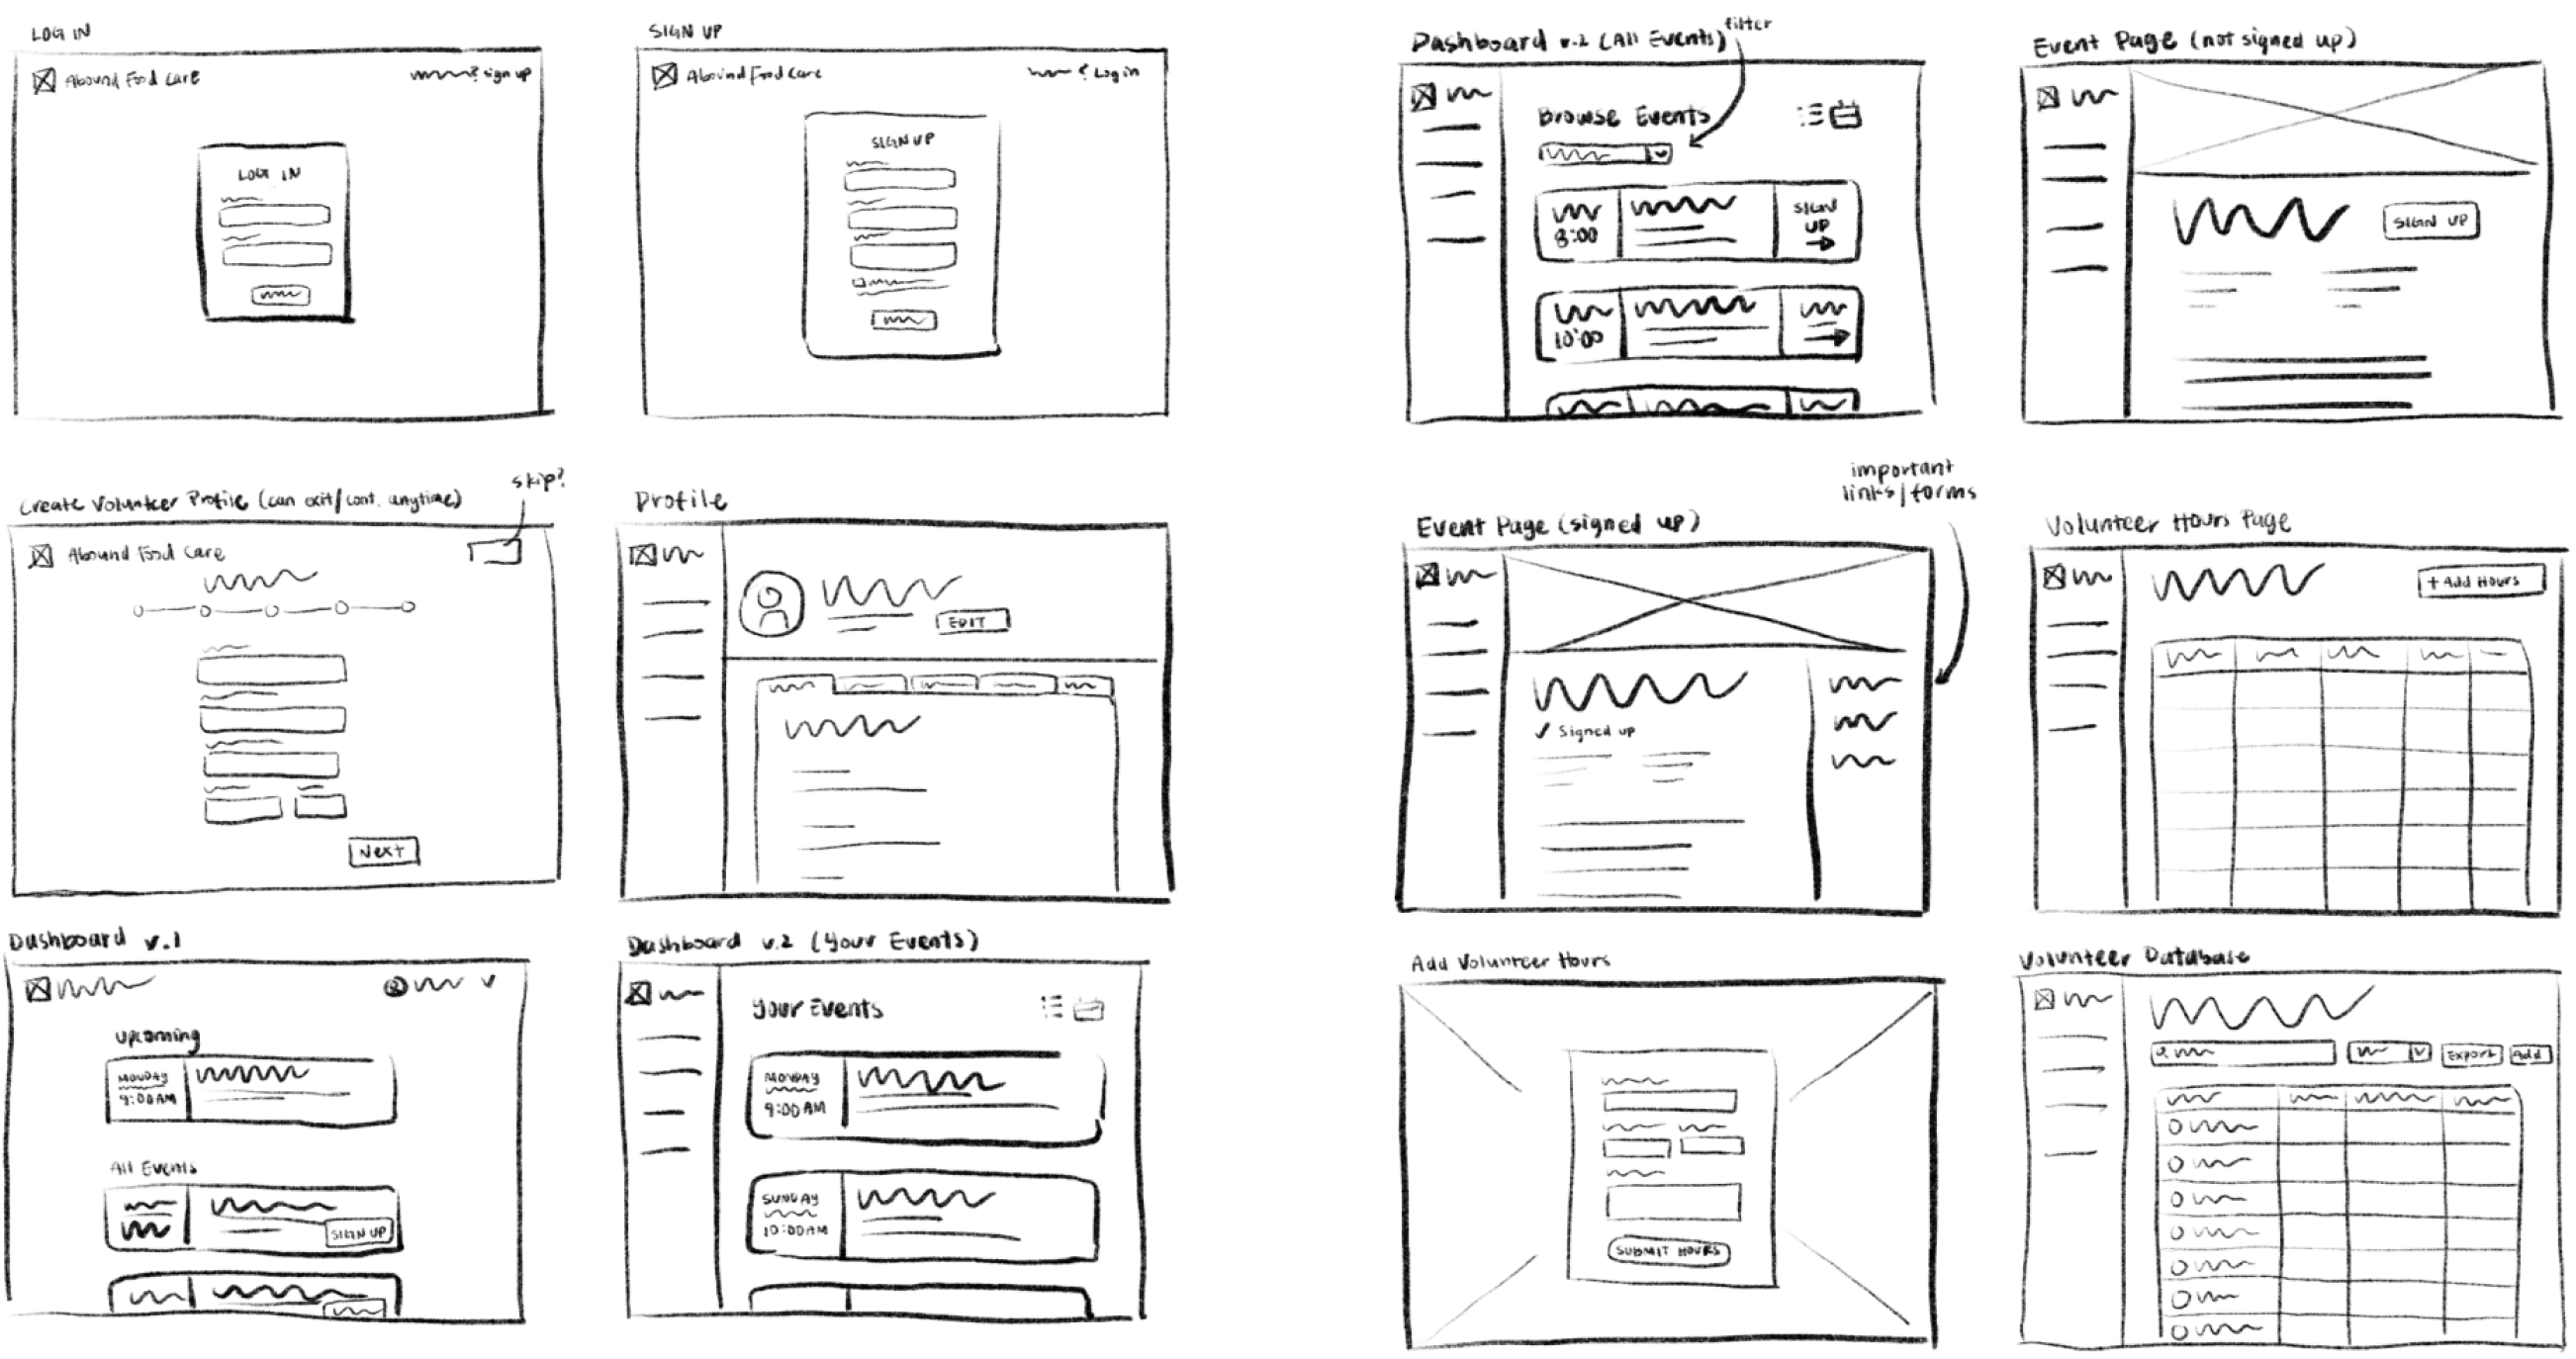 LOG IN
Abound Food Care
? sign up
LOG IN
SIGN UP
Abound Food Care
? Log in
SIGN UP
Create Volunteer Profile (can exit/cont. anytime)
skip?
Abound Food Care
Next
Profile
EDIT
Dashboard v.1
upcoming
MONDAY
9:00AM
All Events
SIGN UP
Dashboard v.2 (Your Events)
Your Events
MONDAY
9:00AM
SUNDAY
10:00AM
Dashboard v.2 (All Events)
filter
Browse Events
8:00
SIGN
UP
10:00
Event Page (not signed up)
SIGN UP
Event Page (signed up)
important
links/forms
✓ Signed up
Volunteer Hours Page
+ Add Hours
Add Volunteer Hours
SUBMIT HOURS
Volunteer Database
Export
Add